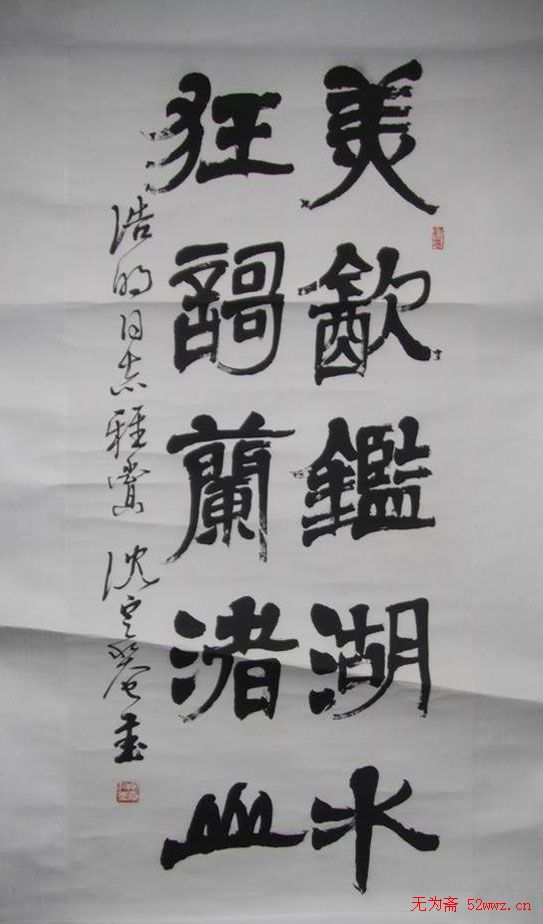 美㱃鑑湖水
狂謌蘭渚山
浩明同志雅賞 沈定庵書
无为斋 52wwz.cn